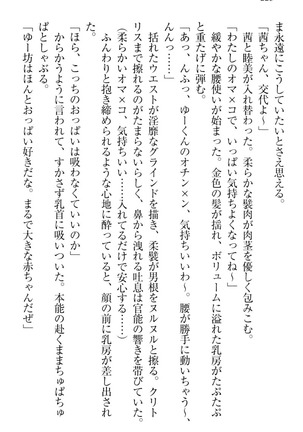 ま永遠にこうしていたいとさえ思える。
「茜ちゃん、交代よ〜」
茜と睦美が入れ替わった。柔らかな襞肉が肉茎を優しく包みこむ。
「わたしのオマ×コで、いっぱい気持ちよくなってね〜」
緩やかな腰使いが始まった。金色の髪が揺れ、ボリュームに溢れた乳房がたぷたぷ
と重たげに弾む。
「あっ、んふっ、ゆーくんのオチン×ン、気持ちいいわ〜。腰が勝手に動いちゃう〜、
んっ……」
括れたウエストが淫靡なグラインドを描き、柔襞が男根をヌルヌルと擦る。クリト
リスまで擦れるのがたまらないらしく、鼻から洩れる吐息は官能の響きを帯びていた。
(柔らかいオマ×コ、気持ちいい……入れてるだけで安心する……)
ふんわりと抱き締められるような心地に酔っていると、顔の前に乳房が差し出され
た。
「ほら、こっちのおっぱいは吸わなくていいのか?」
からかうように言われて、すかさず乳首に吸いついた。本能の赴くままちゅぱちゅ
ぱとしゃぶる。
「ゆー坊はほんとおっぱい好きだな。まるで大きな赤ちゃんだぜ」